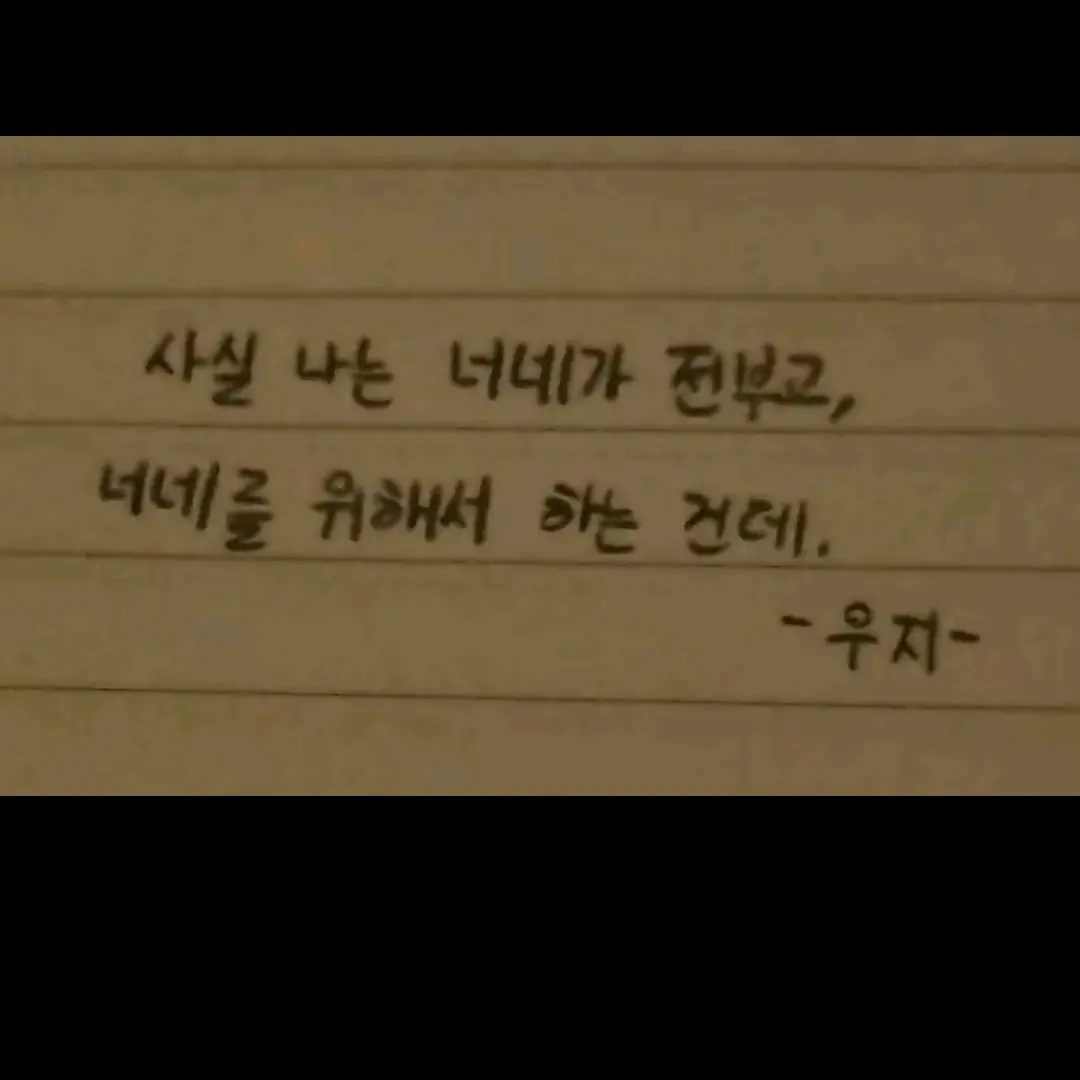 사실 나는 너네가 전부고,
너네를 위해서 하는 건데.
-우지-